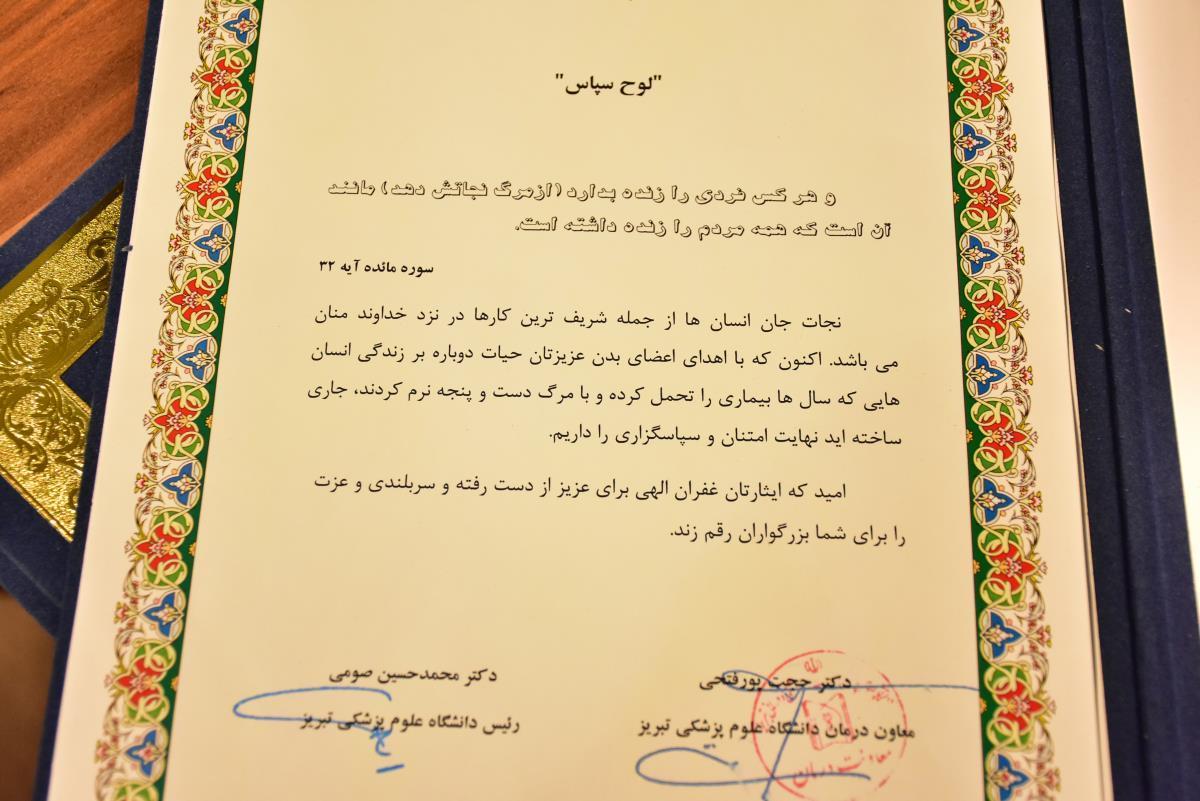 "لوح سپاس"
و هر کس فردی را زنده بدارد (ازمرگ نجاتش دهد) مانند
آن است که همه مردم را زنده داشته است.
سوره مائده آیه ۳۲
نجات جان انسان ها از جمله شریف ترین کارها در نزد خداوند منان
می باشد. اکنون که با اهدای اعضای بدن عزیزتان حیات دوباره بر زندگی انسان
هایی که سال ها بیماری را تحمل کرده و با مرگ دست و پنجه نرم کردند، جاری
ساخته اید نهایت امتنان و سپاسگزاری را داریم.
امید که ایثارتان غفران الهی برای عزیز از دست رفته و سربلندی و عزت
را برای شما بزرگواران رقم زند.
دکتر حجت پورفتحی
معاون درمان دانشگاه علوم پزشکی تبریز
معاونت درمان
دکتر محمدحسین صومی
رئیس دانشگاه علوم پزشکی تبریز